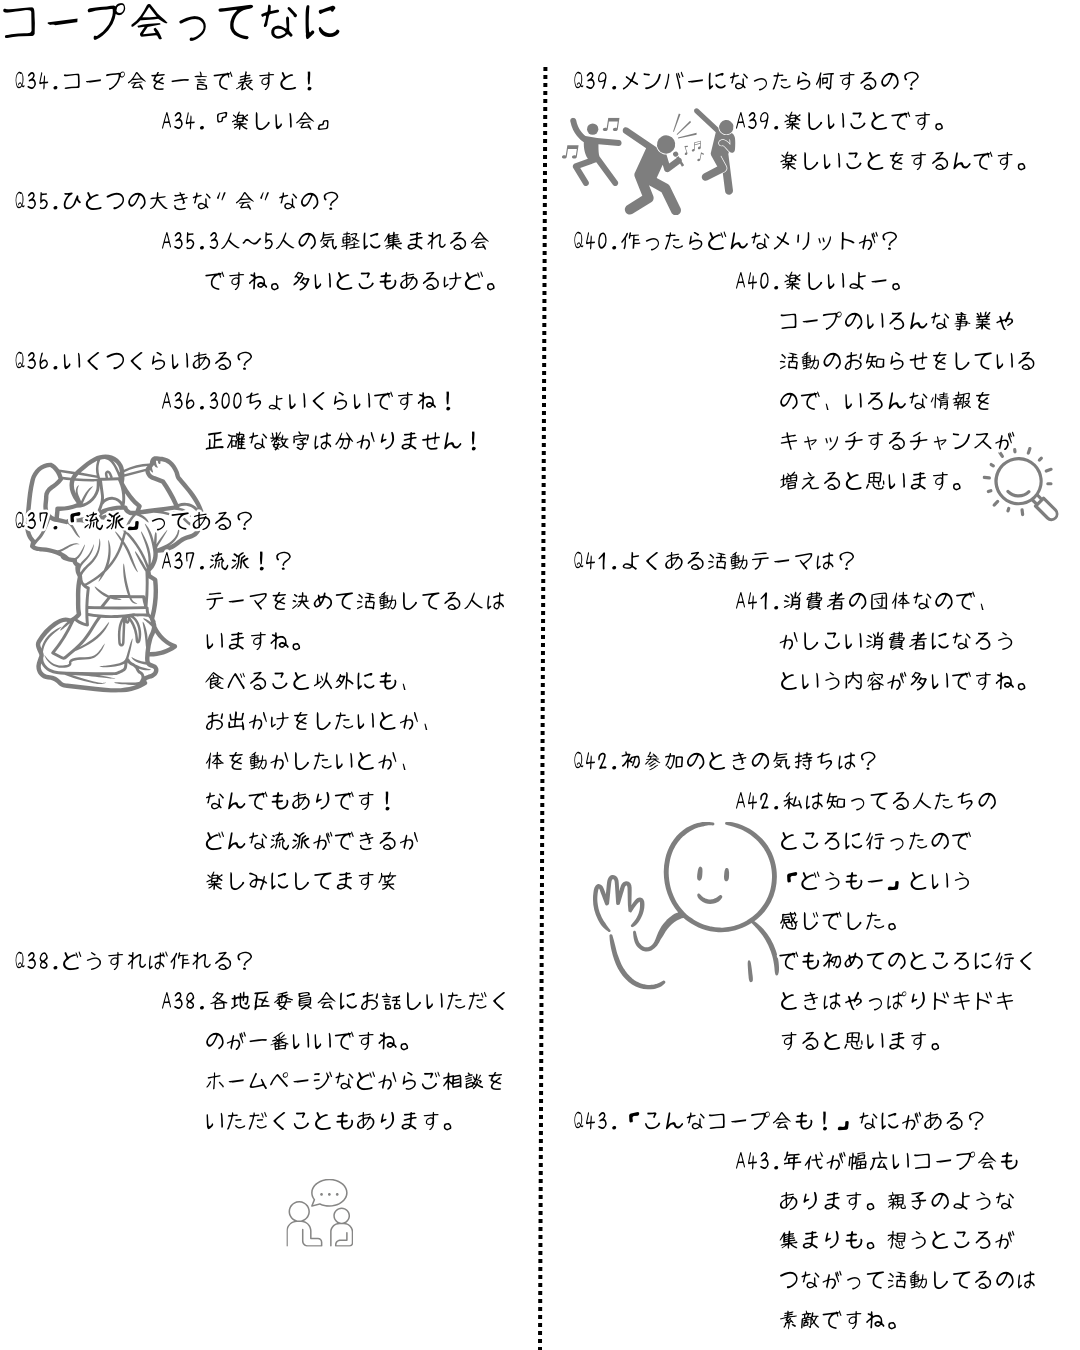 コープ会ってなに
Q34.コープ会を一言で表すと！
A34.『楽しい会』
Q35.ひとつの大きな”会”なの？
A35.3人〜5人の気軽に集まれる会
ですね。多いとこもあるけど。
Q36.いくつくらいある？
A36.300ちょいくらいですね！
正確な数字は分かりません！
Q37.「流派」ってある？
A37.流派！？
テーマを決めて活動してる人は
いますね。
食べること以外にも、
お出かけをしたいとか、
体を動かしたいとか、
なんでもありです！
どんな流派ができるか
楽しみにしてます笑
Q38.どうすれば作れる？
A38.各地区委員会にお話しいただく
のが一番いいですね。
ホームページなどからご相談を
いただくこともあります。
Q39.メンバーになったら何するの？
A39.楽しいことです。
楽しいことをするんです。
Q40.作ったらどんなメリットが？
A40.楽しいよー。
コープのいろんな事業や
活動のお知らせをしている
ので、いろんな情報を
キャッチするチャンスが
増えると思います。
Q41.よくある活動テーマは？
A41.消費者の団体なので、
かしこい消費者になろう
という内容が多いですね。
Q42.初参加のときの気持ちは？
A42.私は知ってる人たちの
ところに行ったので
「どうもー」という
感じでした。
でも初めてのところに行く
ときはやっぱりドキドキ
すると思います。
Q43.「こんなコープ会も！」なにがある？
A43.年代が幅広いコープ会も
あります。親子のような
集まりも。想うところが
つながって活動してるのは
素敵ですね。